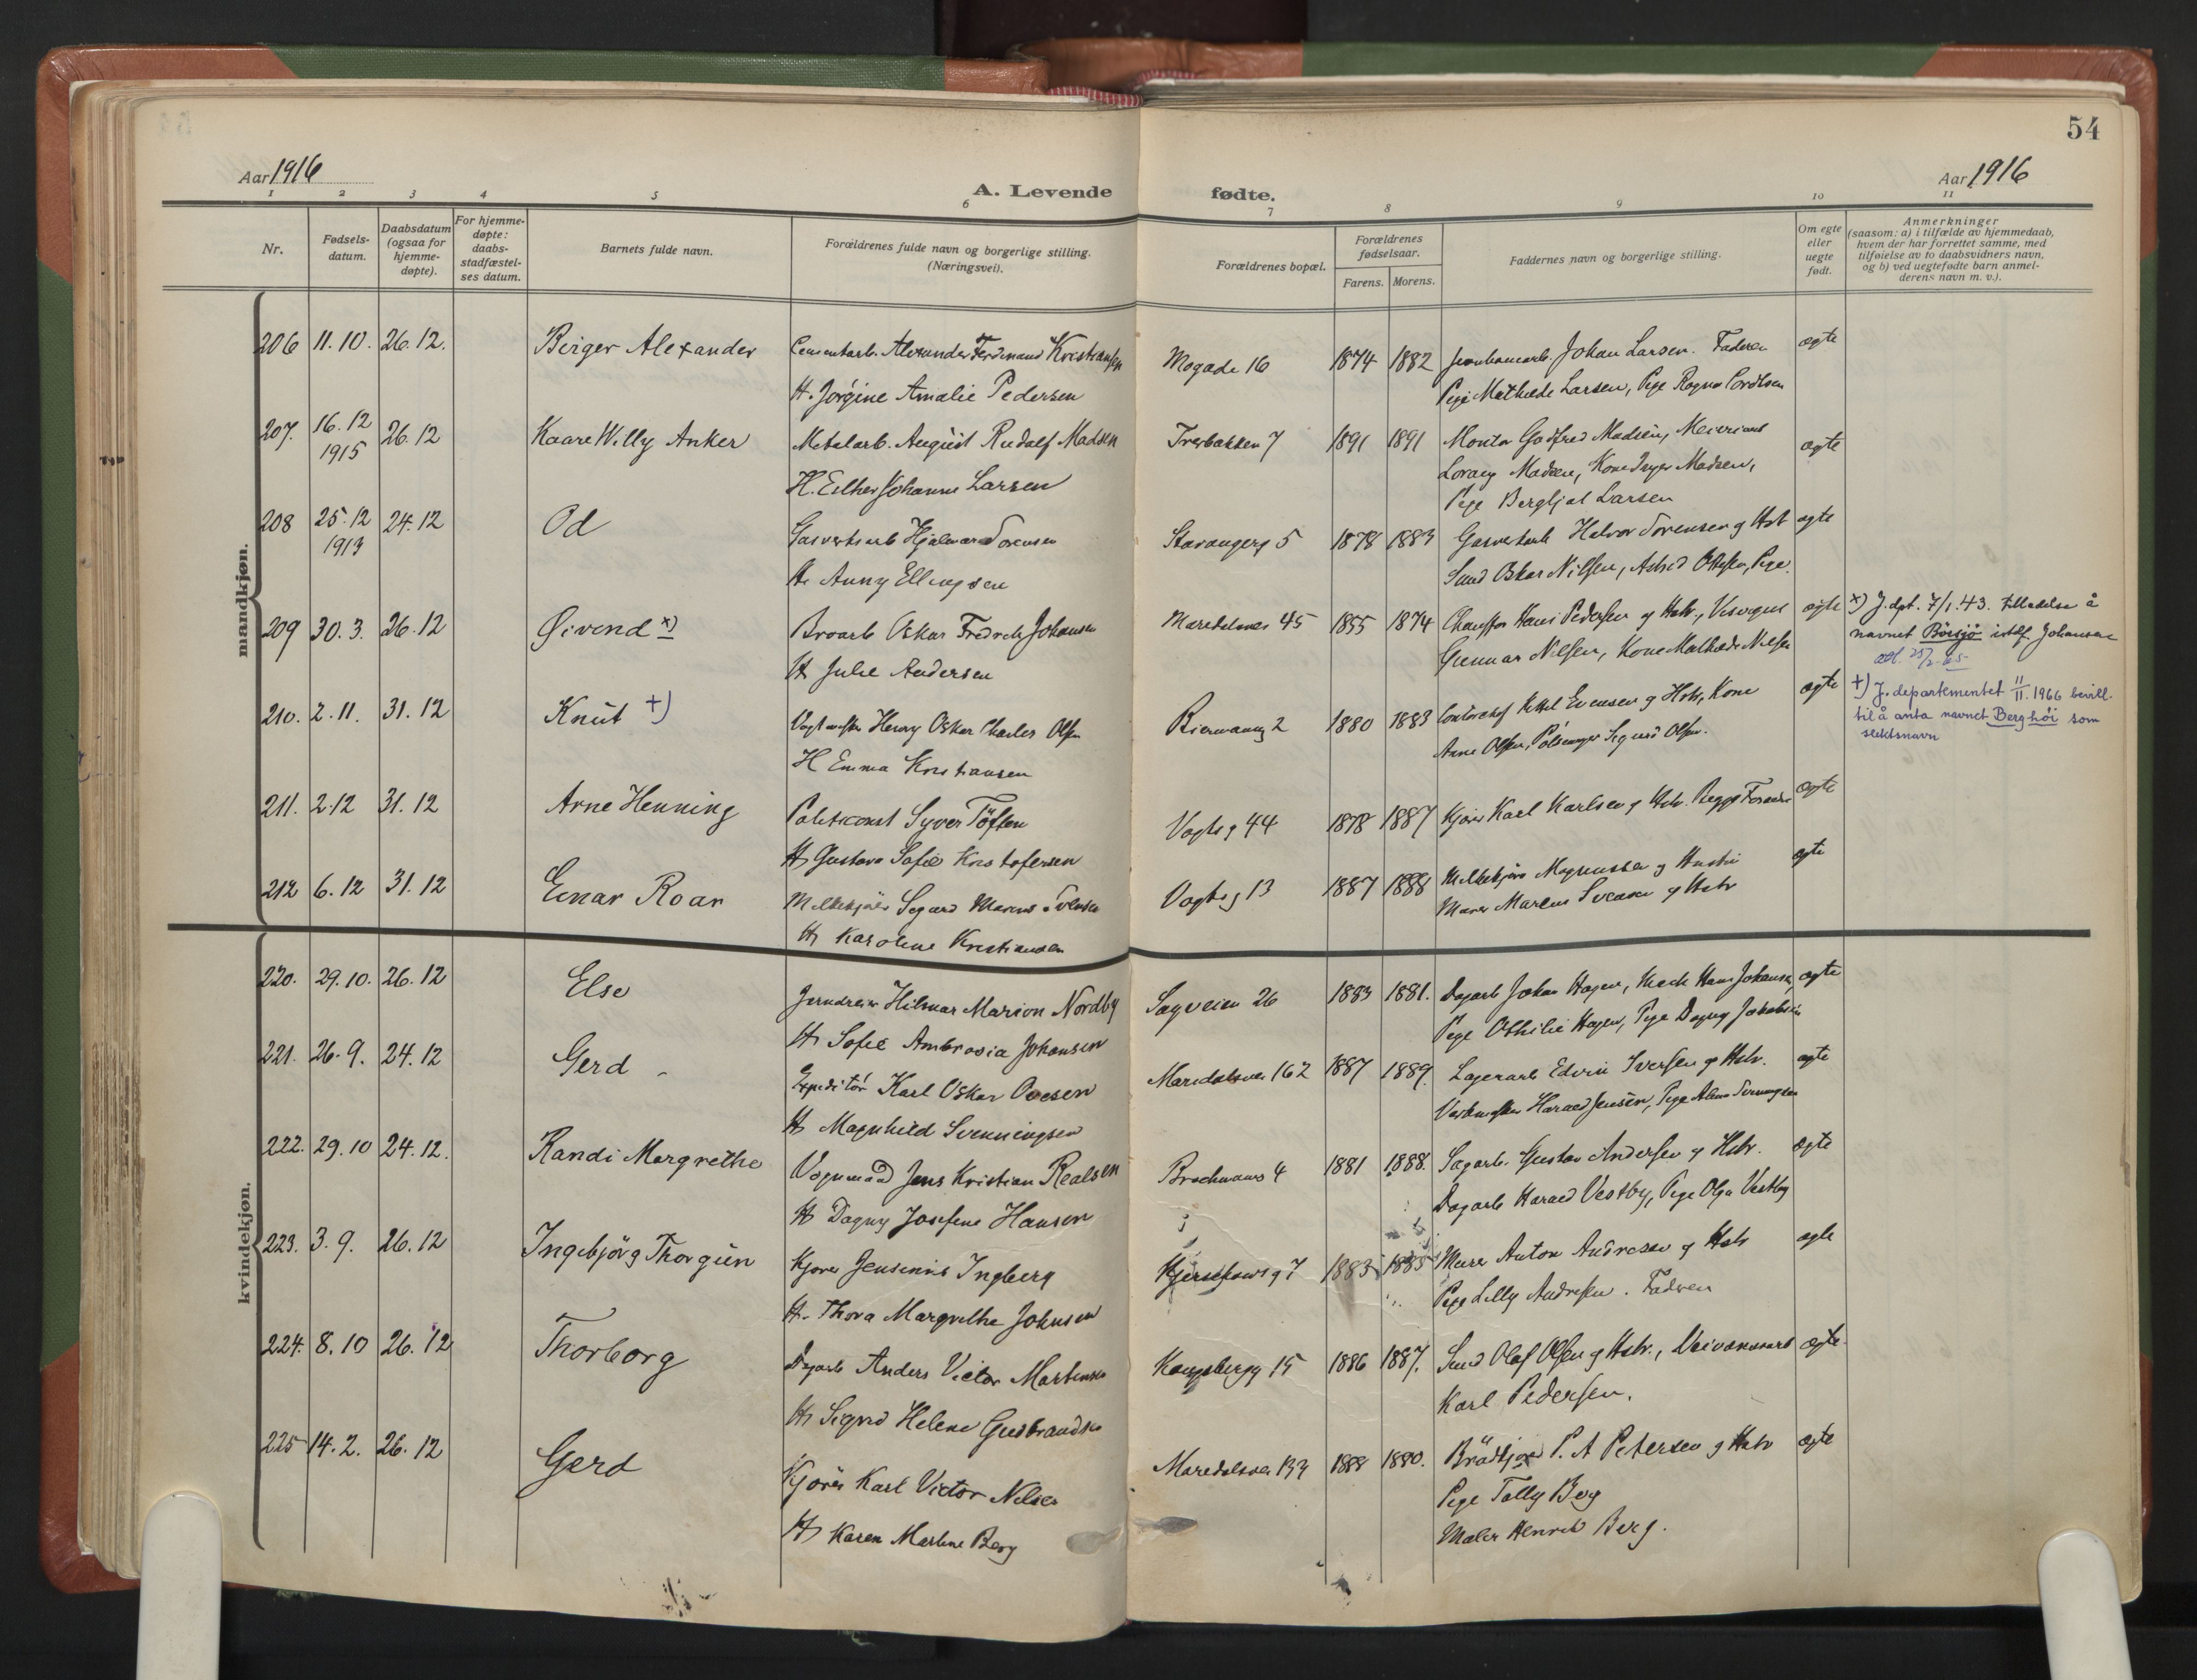 54
Aar 1916
Aar 1916
A. Levende fødte.
1 2 3 4 5 6 7 8 9 10 11
Nr.
Fødsels-
datum.
Daabsdatum
(ogsaa for
hjemme-
døpte).
For hjemme-
døpte:
daabs-
stadfæstel-
ses datum.
Barnets fulde navn.
Forældrenes fulde navn og borgerlige stilling.
(Næringsvei).
Forældrenes bopæl.
Forældrenes
fødselsaar.
Farens. Morens.
Faddernes navn og borgerlige stilling.
Om egte
eller
uegte
født.
Anmerkninger
(saasom: a) i tilfælde av hjemmedaab,
hvem der har forrettet samme, med
tilføielse av to daabsvidners navn,
og b) ved uegtefødte barn anmel-
derens navn m. v.).
mandkjøn.
206 11.10. 26.12. Birger Alexander Cementarb. Alexander Ferdinand Kristiansen Mogade 16 1874 1882 Johan Larsen. Faderen ægte
H. Jørgine Amalie Pedersen Pige Mathilde Larsen, Pige Ragna
207. 16.12 26.12 Kaare Willy Anker Metalarb. August Rudolf Madsen Iversbakken 7 1891 1891 Montør Godfred Madsen, Meieriarb ægte
1915
H. Esther Johanne Larsen Madsen, Kone Inger Madsen,
Pige Bergljot Larsen
208 25.12 24.12 Od Gasverksarb Hjalmar Sørensen Stavangerg 5 1878 1883 Gasverksarb Halvor Sørensen og Hst ægte
1913
H. Anny Ellingsen Smed Oskar Nilsen, Astrid Ottesen, Pige.
209 30.3. 26.12 Øivend x) Broarb Oskar Fredrik Johansen Maridalsvei 45 1855 1874 Chauffør Hans Pedersen og Hstr., Visergut ægte
H Julie Andersen Gunnar Nilsen, Kone Mathilde Nilsen
x) J.dpt. 7/1.43. tillatelse å
navnet Börsjö istdf. Johansen
210. 2.11. 31.12 Knut +) Vagtmester Henry Oskar Charles Olsen Biermanng 2 1880 1883 Evensen og Hstr, Kone ægte
H Emma Kristiansen Anne Olsen, Sigurd Olsen.
+) J.departementet 11/11.1966 bevill.
til å anta navnet Berghöi som
slektsnavn
211. 2.12 31.12 Arne Henning Politiconst Syver Töften Vogts g 44 1878 1887 Kjører Karl Karlsen og Hstr. Begge Forældre ægte
H Gustava Sofie Kristofersen
212 6.12 31.12 Einar Roar Melkekjører Sigurd Marius Svensen Vogts g 13 1887 1888 Melkekjører Magnussen og Hustru ægte
H Karoline Kristiansen Murer Marius Svensen og Hstr
kvindekjøn.
220. 29.10. 26.12 Else Jerndreier Hilmar Marion Nordby Sagveien 26 1883 1881. Dagarb Johan Hagen, Mek Hans Johansen, ægte
H Sofie Ambrosia Johansen Pige Othilie Hagen, Pige Dagny Jakobsen
221. 26.9. 24.12 Gerd Expeditør Karl Oskar Maridalsvei 162 1887 1889. Lagerarb Edvin Iversen og Hstr. ægte
H Magnhild Svenningsen Verkmester Harald Jensen, Pige Svenningsen
222. 29.10 24.12. Randi Margrethe Vognmand Jens Kristian Realsen Brochmans 4 1881 1888. Sagarb. Gustav Andersen og Hstr. ægte
H Dagny Josefine Hansen Dagarb Harald Vestby, Pige Olga Vestby
223. 3.9. 26.12 Ingebjörg Thorgun Kjører Jensenius Ingberg 1883 1885 Murer Anton Andresen og Hstr ægte
H. Thora Margrethe Johnsen Pige Lilly Andresen. Fadren
224. 8.10 26.12 Thorborg Dagarb Anders Victor Martinsen Kongsbergg 15 1886 1887. Smed Olaf Olsen og Hstr., ægte
H Sigrid Helene Gudbrandsen Karl Pedersen.
225 14.2. 26.12 Gerd Kjører Karl Victor Nilsen Maridalsvei 133 1888 1880. Brödkjører P. A Petersen og Hstr ægte
H Karen Marline Berg Pige Tolly Berg
Maler Henrik Berg.